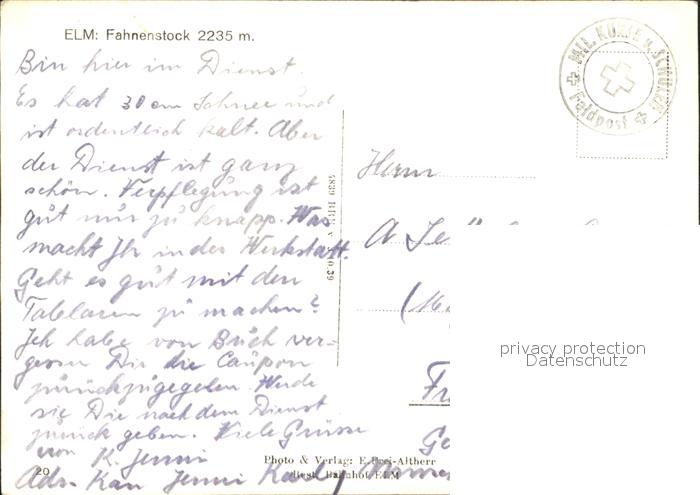 ELM: Fahnenstock 2235 m.
Bin hier im Dienst.
Es hat 30 cm Schnee und
ist ordentlich kalt. Aber
der Dienst ist ganz
schön. Verpflegung ist
gut nur zu knapp. Was
macht Ihr in der Werkstatt.
Geht es gut mit den
Tablaren zu machen?
Ich habe von Buch ver-
gessen Dir die Coupon
zurückzugegeben. Werde
sie Dir nach dem Dienst
zurück geben. Viele Grüsse
von K. Jenni
Adr. Kan Jenni
MIL. KURSE u. SCHULEN
Feldpost
4839 BRB 39
Herrn
A
privacy protection
Datenschutz
20
Photo & Verlag: E. Frei-Altherr
Bahnhof ELM